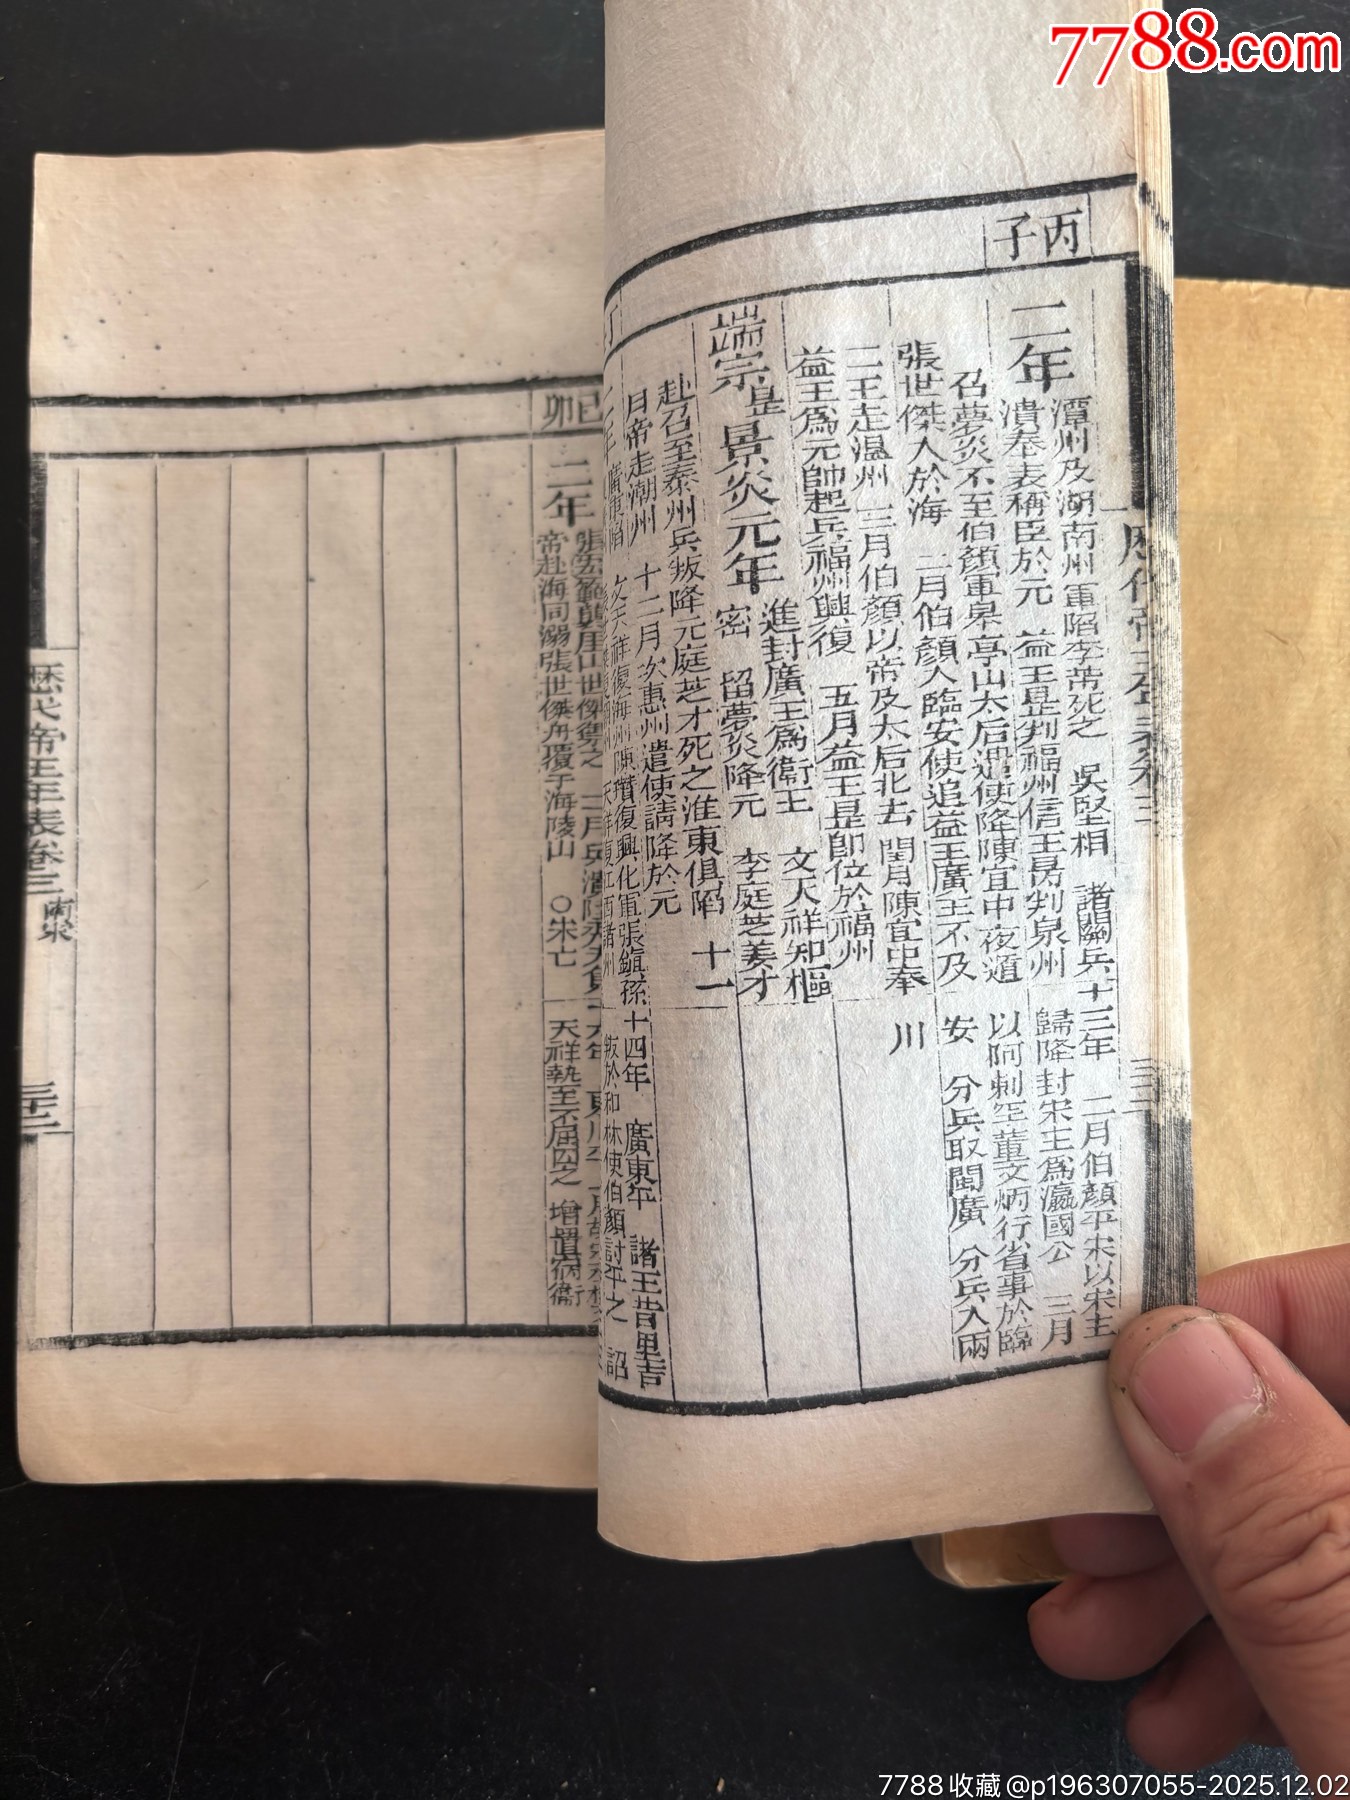 7788.com
丙子
二年
潭州及湖南州軍陷李芾死之 吳堅相 諸關兵
潰奉表稱臣於元 益王昰判福州信王昺判泉州
召夢炎不至伯顏軍皋亭山太后遣使降陳宜中夜遁
張世傑入於海 二月伯顏入臨安使追益王廣王不及
二王走溫州 三月伯顏以帝及太后北去 閏月陳宜中奉
益王爲元帥起兵福州興復 五月益王昰即位於福州
十三年 二月伯顏平宋以宋主
歸降封宋主爲瀛國公 三月
以阿剌罕董文炳行省事於臨
安 分兵取閩廣 分兵入兩
川
端宗昰景炎元年
進封廣王爲衛王 文天祥知樞
密 留夢炎降元 李庭芝姜才
赴召至泰州兵叛降元庭芝才死之淮東俱陷 十一
月帝走潮州 十二月次惠州遣使請降於元
丁
二年
廣東陷 文天祥復海州陳瓚復興化軍張鎮孫
十四年 廣東平 諸王昔里吉
叛於和林使伯顏討平之 詔
歷代帝王年表卷三
己卯
二年
帝赴海同溺張世傑舟覆于海陵山 ○宋亡
天祥執至不屈囚之 增置宿衛
歷代帝王年表卷三 南宋
三十二
7788收藏@p196307055-2025.12.02